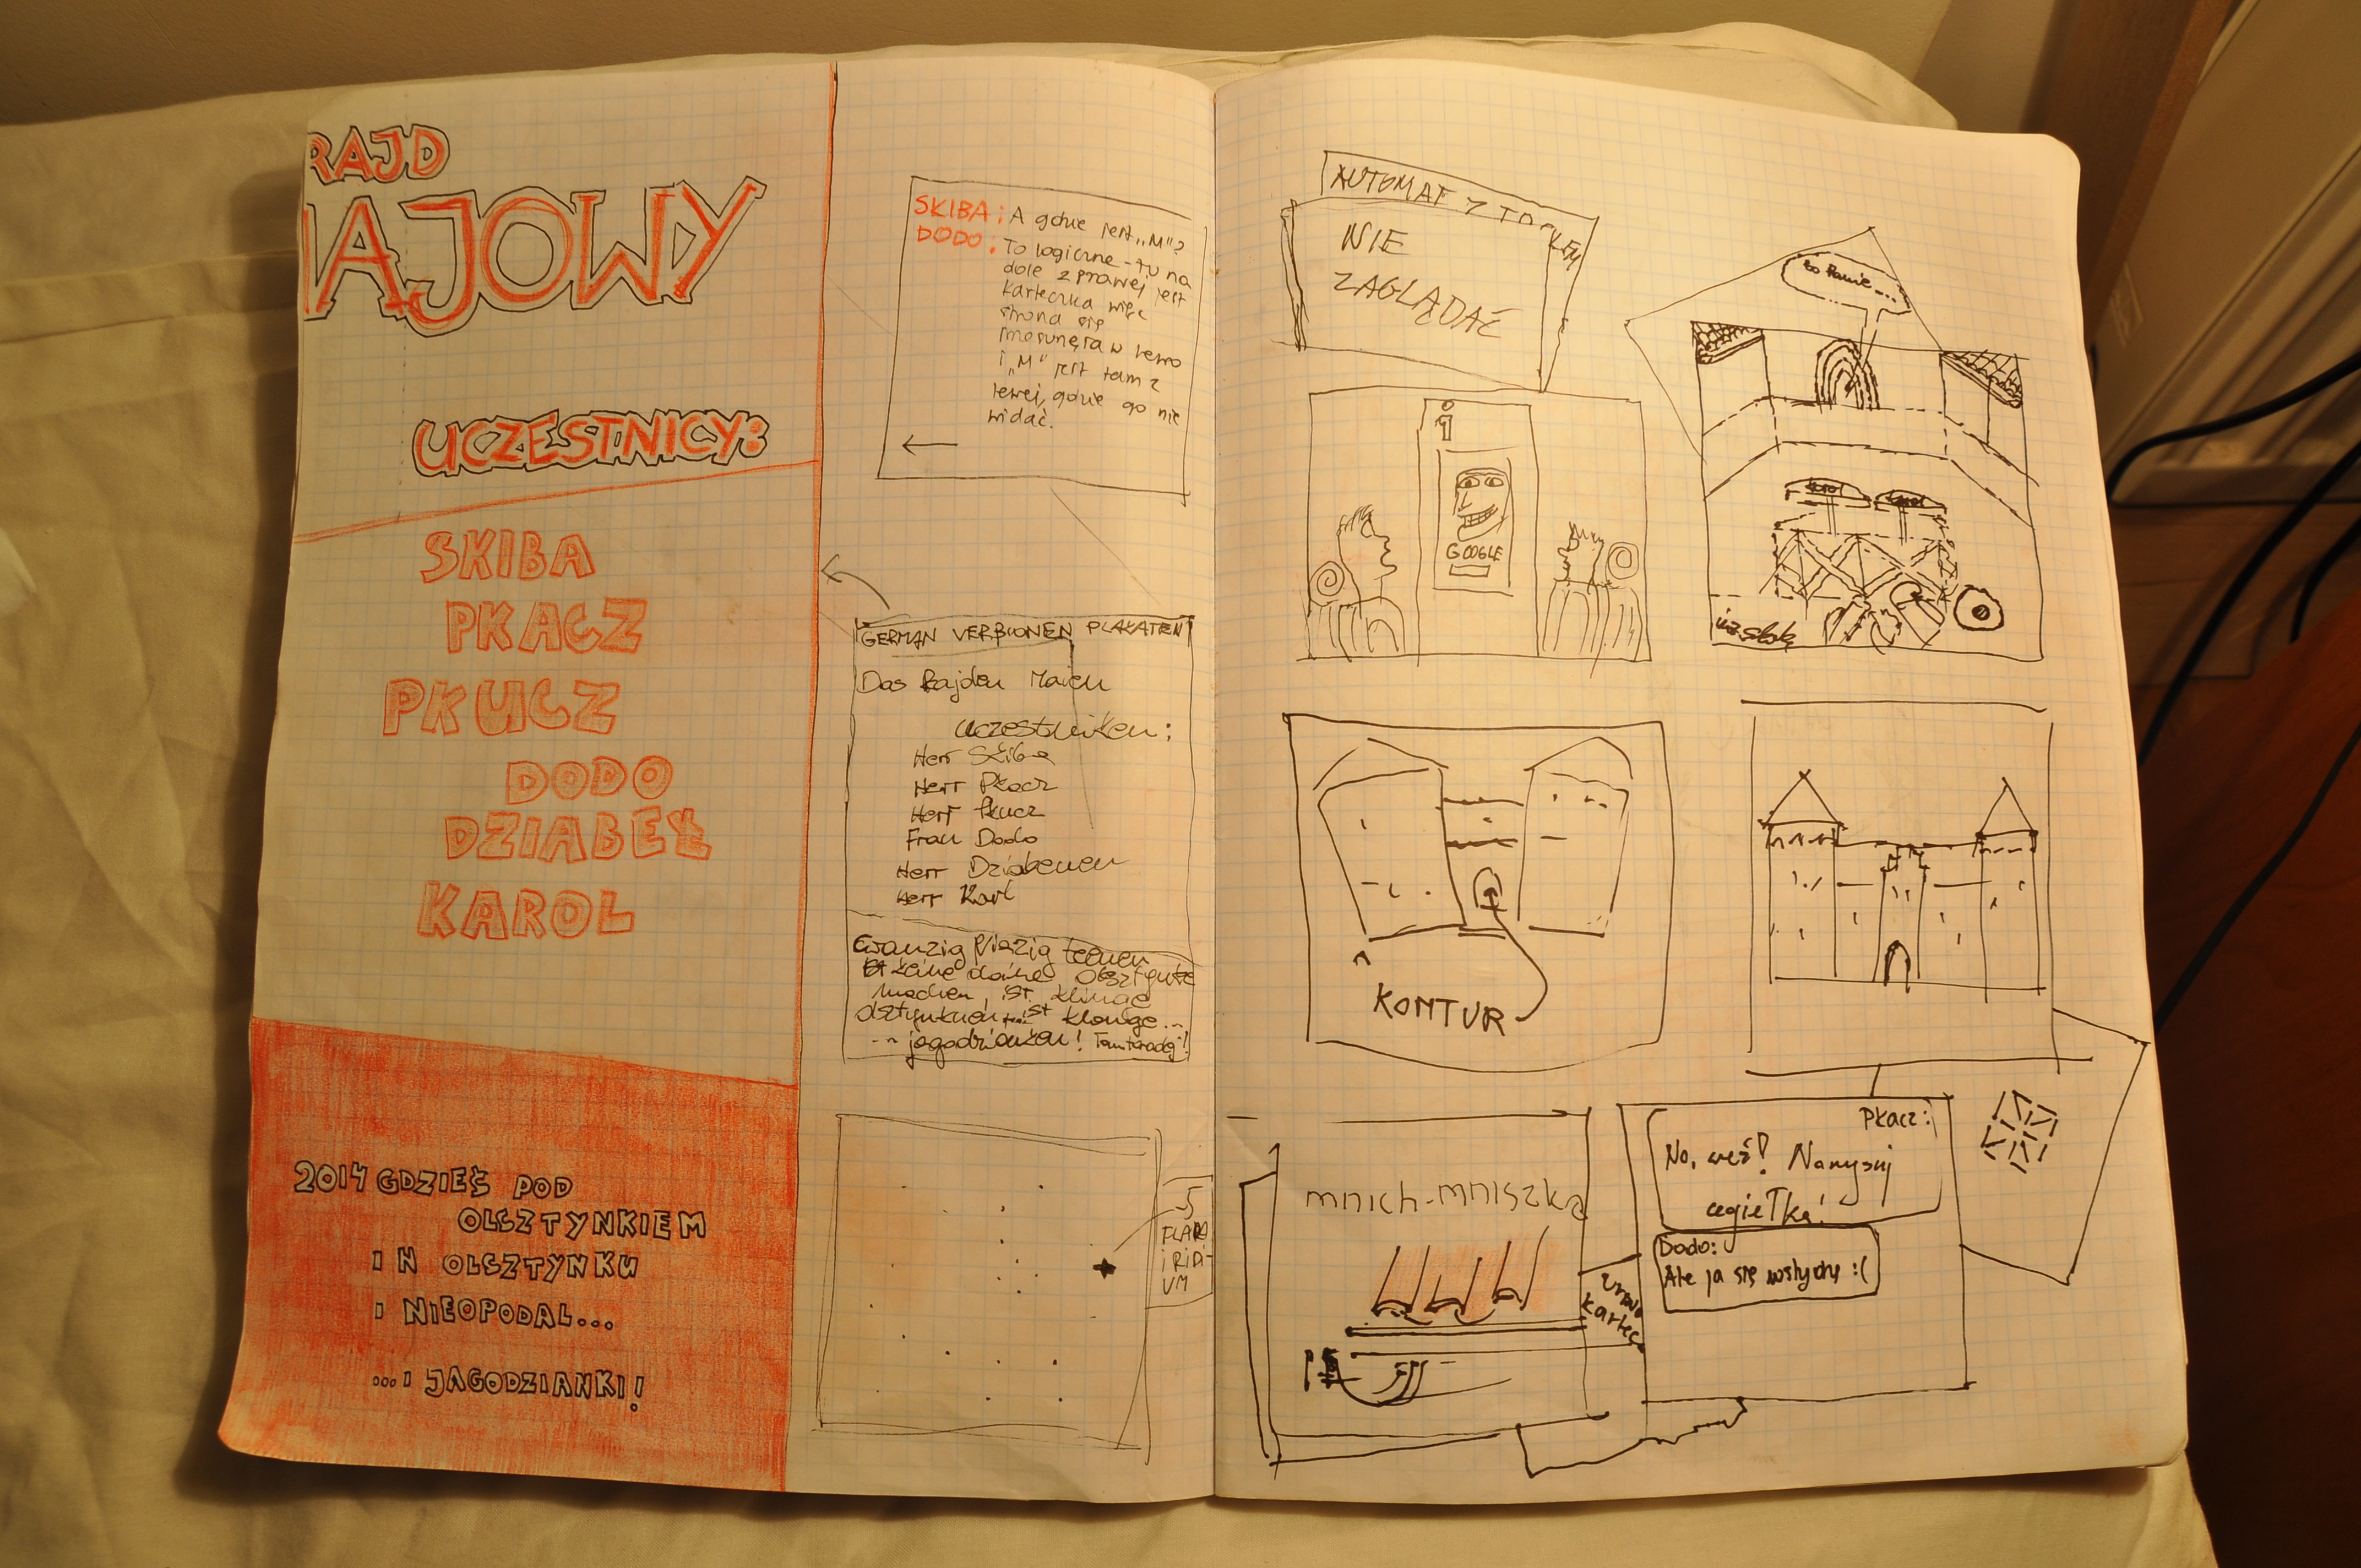 RAJD
AJOWY
UCZESTNICY:
SKIBA
PKACZ
PKUCZ
DODO
DZIABEŁ
KAROL
2014 GDZIEŚ POD
OLSZTYNKIEM
I N OLSZTYNKU
I NIEOPODAL...
...I JAGODZIANKI!
SKIBA: A gdzie jest „M"?
DODO: To logiczne - tu na
dole z prawej jest
karteczka więc
strona się
przesunęła w lewo
i „M" jest tam z
lewej, gdzie go nie
widać.
GERMAN VERSIONEN PLAKATEN
Das Rajden Maien
Uczestniken:
Herr Skiba
Herr Pkacz
Herr Pkucz
Frau Dodo
Herr Dziabenen
Herr Karl
machen, ist klinge
ist klonge...
... jagodzianken!
5
FLARA
IRIDI-
UM
AUTOMAT Z
NIE
ZAGLĄDAĆ
i
GOOGLE
KONTUR
mnich-mniszka
Pkacz:
No, weź! Narysuj
cegiełkę!
Dodo:
Ale ja się wstydzę :(